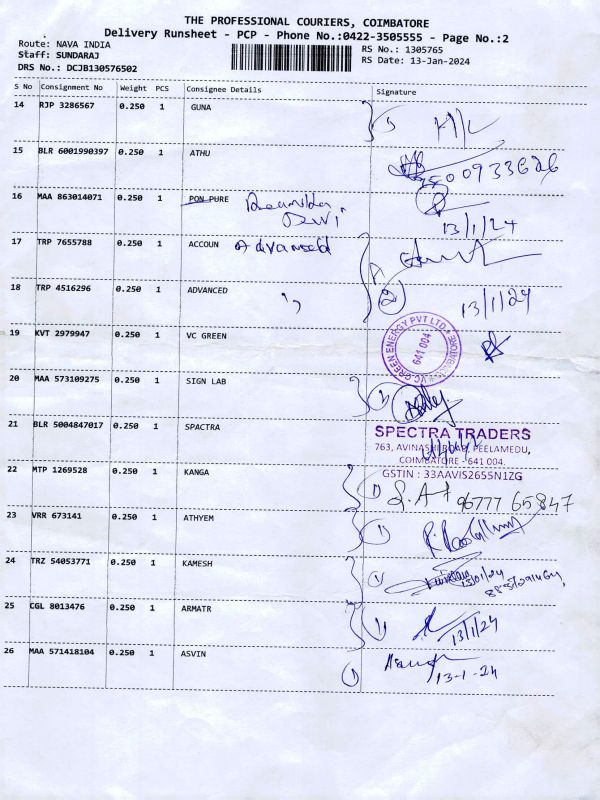 THE PROFESSIONAL COURIERS, COIMBATORE
Delivery Runsheet - PCP - Phone No.:0422-3505555 - Page No.:2
Route: NAVA INDIA
Staff: SUNDARAJ
DRS No.: DCJB130576502
RS No.: 1305765
RS Date: 13-Jan-2024
S No Consignment No Weight PCS Consignee Details Signature
14 RJP 3286567 0.250 1 GUNA
15 BLR 6001990397 0.250 1 ATHU
16 MAA 863014071 0.250 1 PON PURE Devi
13/1/24
17 TRP 7655788 0.250 1 ACCOUN Advanced
18 TRP 4516296 0.250 1 ADVANCED
13/1/24
19 KVT 2979947 0.250 1 VC GREEN
VC GREEN ENERGY PVT LTD. COIMBATORE
641 004
20 MAA 573109275 0.250 1 SIGN LAB
21 BLR 5004847017 0.250 1 SPACTRA
SPECTRA TRADERS
763, AVINASHI ROAD, PEELAMEDU,
COIMBATORE - 641 004
GSTIN : 33AAVIS2655N1ZG
22 MTP 1269528 0.250 1 KANGA
96777 65847
23 VRR 673141 0.250 1 ATHYEM
24 TRZ 54053771 0.250 1 KAMESH
13/01/24
25 CGL 8013476 0.250 1 ARMATR
13/1/24
26 MAA 571418104 0.250 1 ASVIN
13-1-24